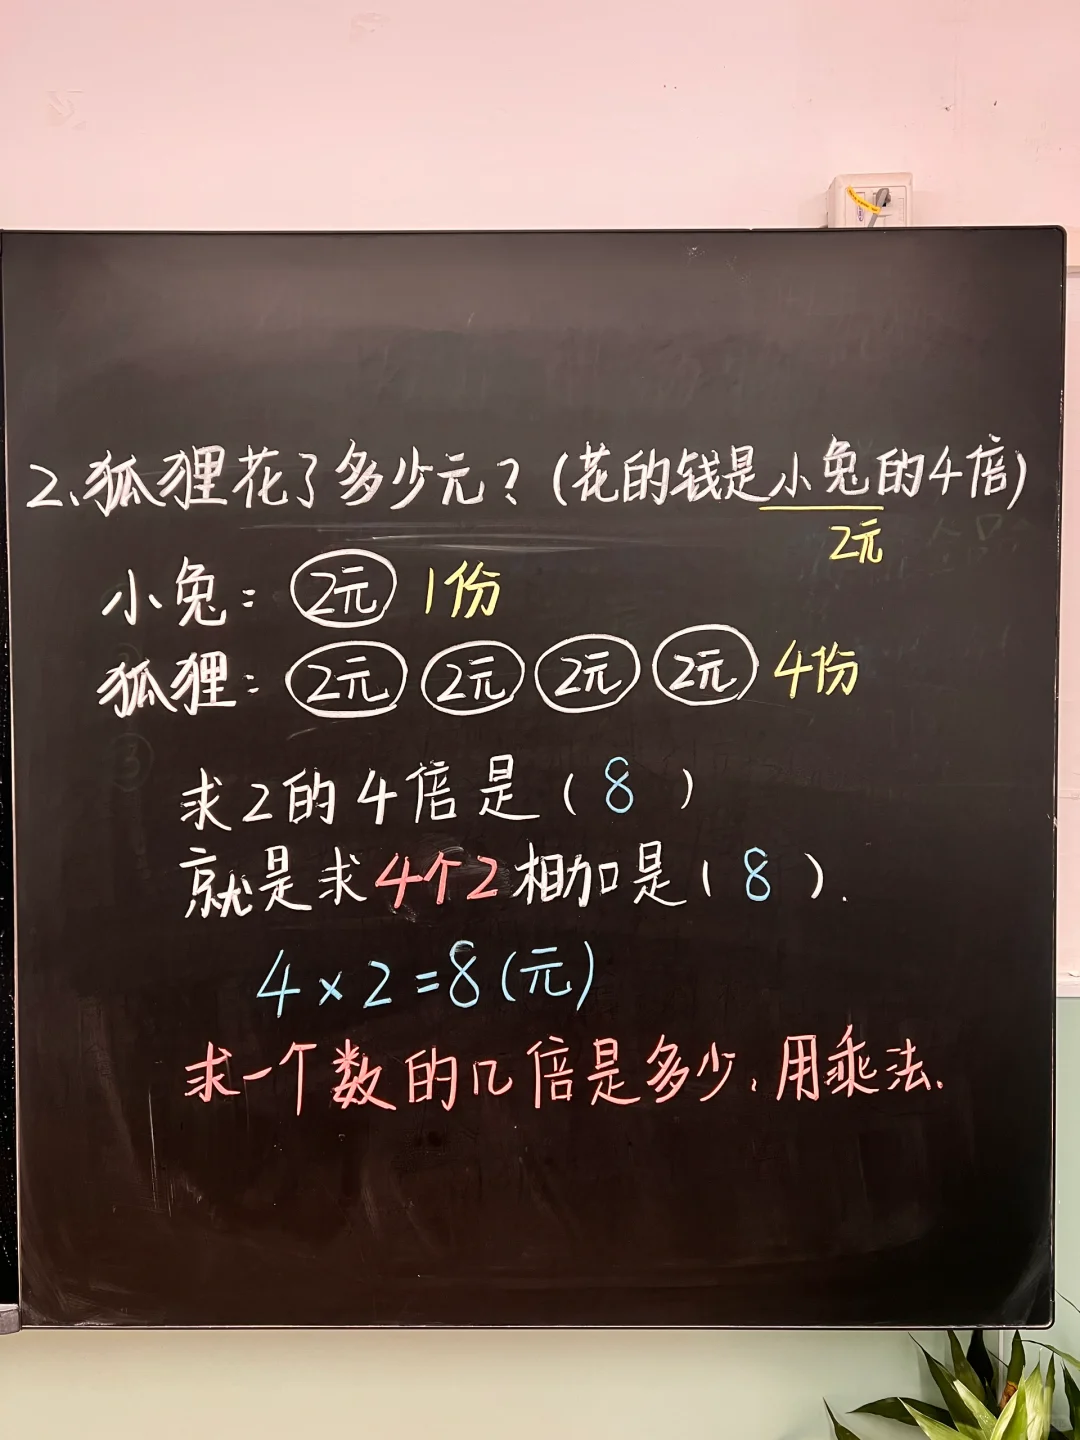 2、狐狸花了多少元？(花的钱是小兔的4倍)
2元
小兔：2元 1份
狐狸：2元 2元 2元 2元 4份
求2的4倍是（8）
就是求4个2相加是（8）.
4×2=8(元)
求一个数的几倍是多少，用乘法.